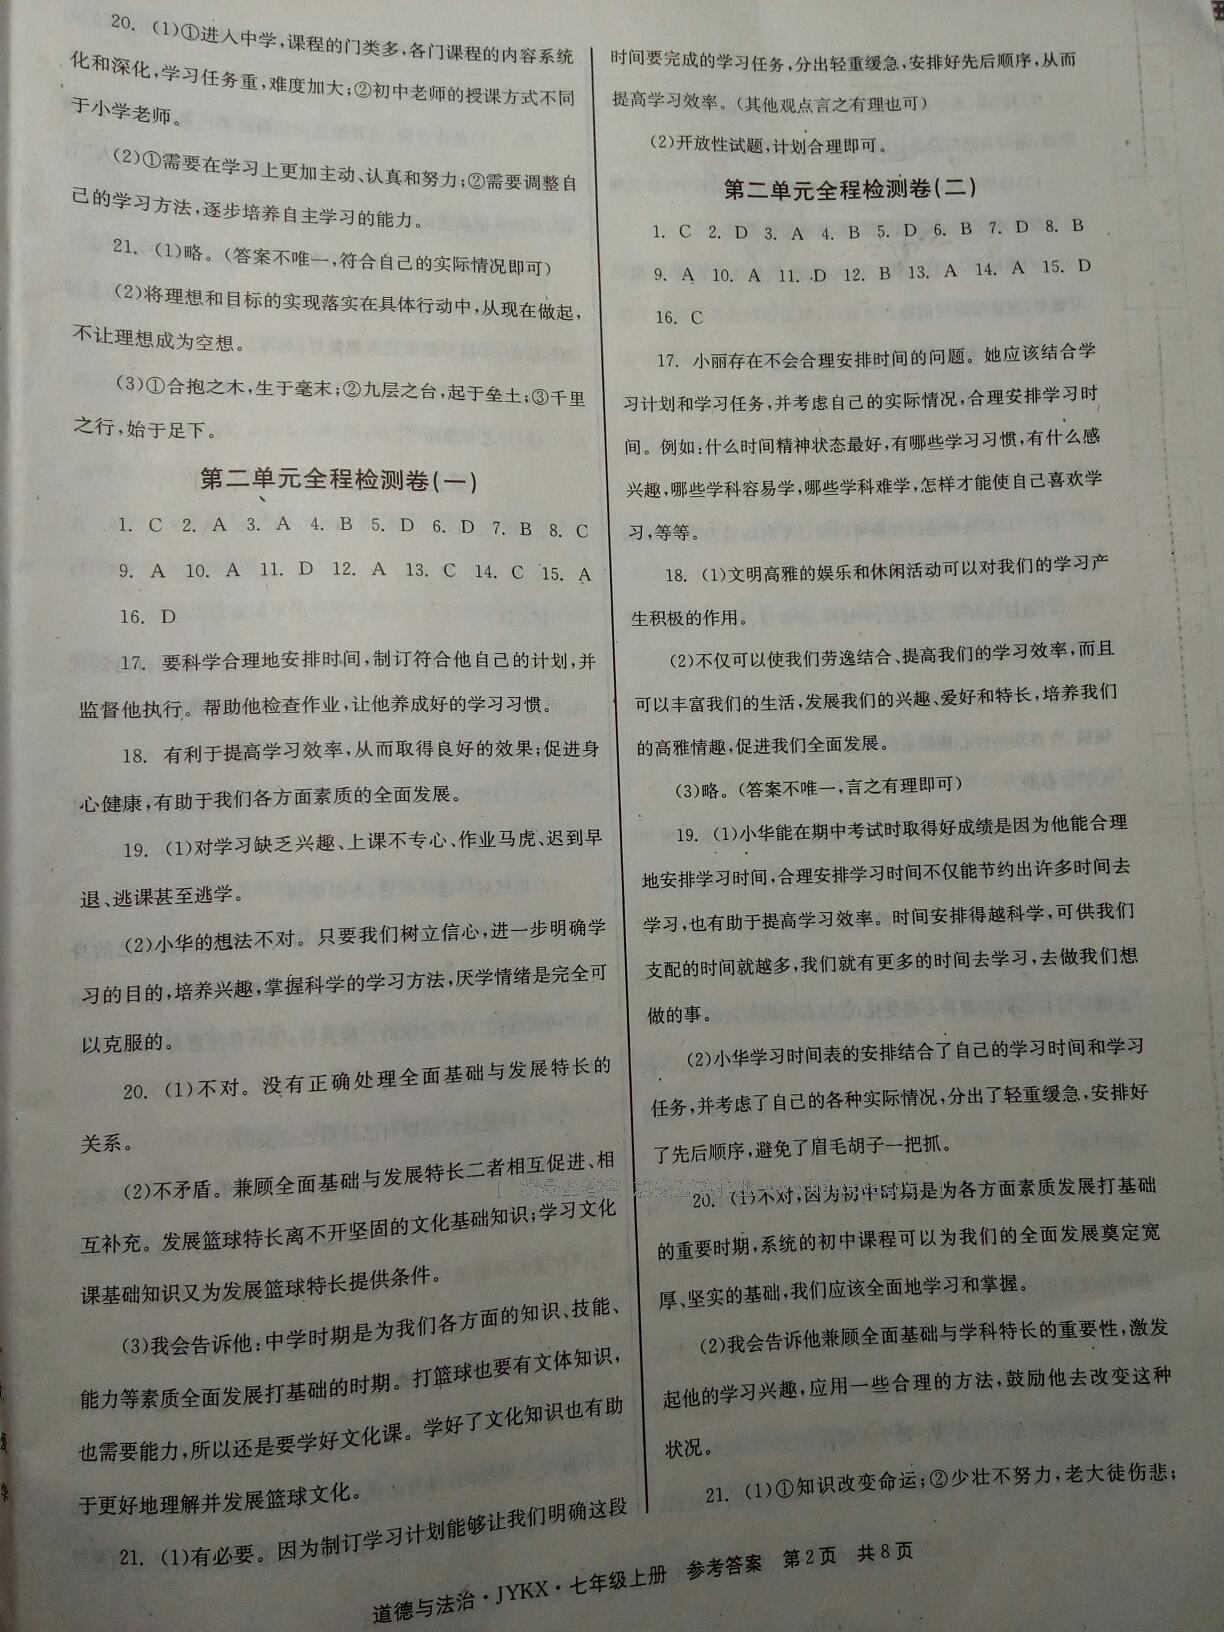 20. (1)①进入中学,课程的门类多,各门课程的内容系统
化和深化,学习任务重,难度加大;②初中老师的授课方式不同
于小学老师。
(2)①需要在学习上更加主动、认真和努力;②需要调整自
己的学习方法,逐步培养自主学习的能力。
21. (1)略。(答案不唯一,符合自己的实际情况即可)
(2)将理想和目标的实现落实在具体行动中,从现在做起,
不让理想成为空想。
(3)①合抱之木,生于毫末;②九层之台,起于垒土;③千里
之行,始于足下。
第二单元全程检测卷(一)
1. C 2. A 3. A 4. B 5. D 6. D 7. B 8. C
9. A 10. A 11. D 12. A 13. C 14. C 15. A
16. D
17. 要科学合理地安排时间,制订符合他自己的计划,并
监督他执行。帮助他检查作业,让他养成好的学习习惯。
18. 有利于提高学习效率,从而取得良好的效果;促进身
心健康,有助于我们各方面素质的全面发展。
19. (1)对学习缺乏兴趣、上课不专心、作业马虎、迟到早
退、逃课甚至逃学。
(2)小华的想法不对。只要我们树立信心,进一步明确学
习的目的,培养兴趣,掌握科学的学习方法,厌学情绪是完全可
以克服的。
20. (1)不对。没有正确处理全面基础与发展特长的
关系。
(2)不矛盾。兼顾全面基础与发展特长二者相互促进、相
互补充。发展篮球特长离不开坚固的文化基础知识;学习文化
课基础知识又为发展篮球特长提供条件。
(3)我会告诉他:中学时期是为我们各方面的知识、技能、
能力等素质全面发展打基础的时期。打篮球也要有文体知识,
也需要能力,所以还是要学好文化课。学好了文化知识也有助
于更好地理解并发展篮球文化。
21. (1)有必要。因为制订学习计划能够让我们明确这段
时间要完成的学习任务,分出轻重缓急,安排好先后顺序,从而
提高学习效率。(其他观点言之有理也可)
(2)开放性试题,计划合理即可。
第二单元全程检测卷(二)
1. C 2. D 3. A 4. B 5. D 6. B 7. D 8. B
9. A 10. A 11. D 12. B 13. A 14. A 15. D
16. C
17. 小丽存在不会合理安排时间的问题。她应该结合学
习计划和学习任务,并考虑自己的实际情况,合理安排学习时
间。例如:什么时间精神状态最好,有哪些学习习惯,有什么感
兴趣,哪些学科容易学,哪些学科难学,怎样才能使自己喜欢学
习,等等。
18. (1)文明高雅的娱乐和休闲活动可以对我们的学习产
生积极的作用。
(2)不仅可以使我们劳逸结合、提高我们的学习效率,而且
可以丰富我们的生活,发展我们的兴趣、爱好和特长,培养我们
的高雅情趣,促进我们全面发展。
(3)略。(答案不唯一,言之有理即可)
19. (1)小华能在期中考试时取得好成绩是因为他能合理
地安排学习时间,合理安排学习时间不仅能节约出许多时间去
学习,也有助于提高学习效率。时间安排得越科学,可供我们
支配的时间就越多,我们就有更多的时间去学习,去做我们想
做的事。
(2)小华学习时间表的安排结合了自己的学习时间和学习
任务,并考虑了自己的各种实际情况,分出了轻重缓急,安排好
了先后顺序,避免了眉毛胡子一把抓。
20. (1)不对,因为初中时期是为各方面素质发展打基础
的重要时期,系统的初中课程可以为我们的全面发展奠定宽
厚、坚实的基础,我们应该全面地学习和掌握。
(2)我会告诉他兼顾全面基础与学科特长的重要性,激发
起他的学习兴趣,应用一些合理的方法,鼓励他去改变这种
状况。
21. (1)①知识改变命运;②少壮不努力,老大徒伤悲;
道德与法治·JYKX·七年级上册 参考答案 第2页 共8页